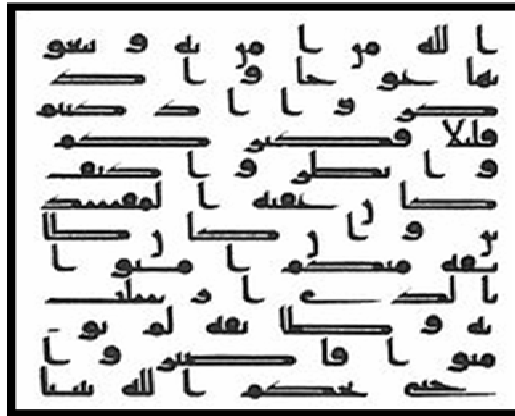 الله من امن به و تبغو
نها عوجا و ا ذ
كرو ا ا ذ كنتم
قليلا فكثركم
و ا نظرو ا كيف
كا ن عقبة ا لمفسد
ين و ا ن كا ن طا
ئفة منكم ا منو ا
با لذي ا ر سلت
به و طا ئفة لم يؤ
منو ا فا صبرو ا
حتى يحكم ا لله بيننا